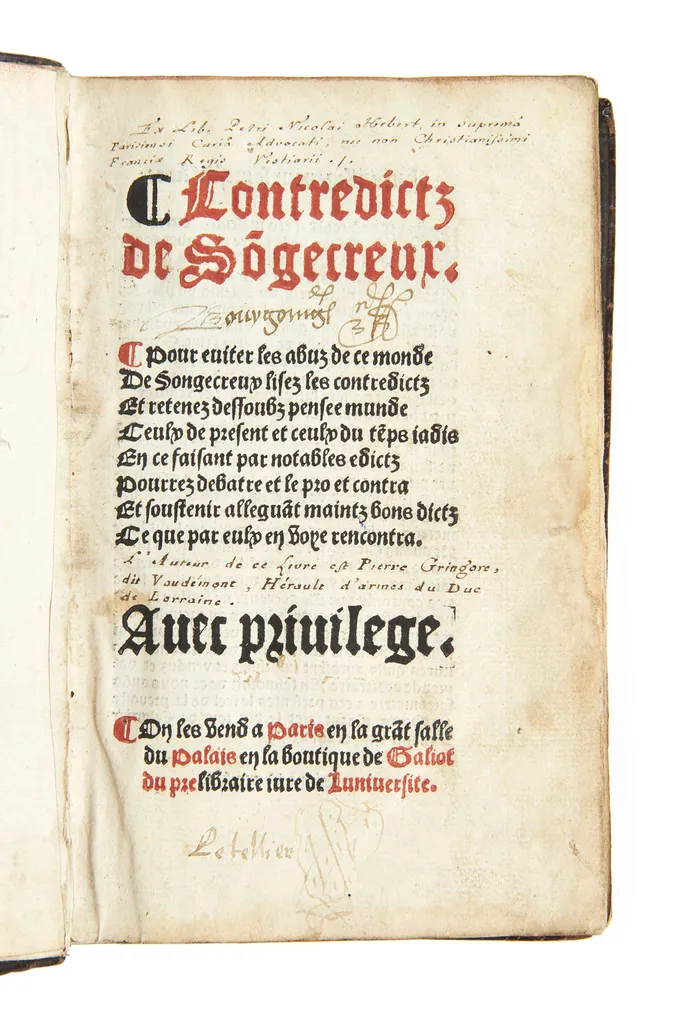 Ex Lib. Petri Nicolai Hebert, in supremâ
Parisiensi Curiâ Advocati, nec non Christianissimi
Franciæ Regis Vestiarii ./.
¶ Contredictz
de Sõgecreux.
¶ Pour euiter les abuz de ce monde
De Songecreux lisez les contredictz
Et retenez dessoubz pensee munde
Ceulx de present et ceulx du tẽps iadis
En ce faisant par notables edictz
Pourrez debatre et le pro et contra
Et soustenir alleguãt maintz bons dictz
Ce que par eulx en voye rencontra.
L'Auteur de ce Livre est Pierre Gringore,
dit Vaudemont, Hérault d'armes du Duc
de Lorraine.
Auec priuilege.
¶ On les vend a Paris en la grãt salle
du Palais en la boutique de Galiot
du pre libraire iure de Luniuersite.
Letellier